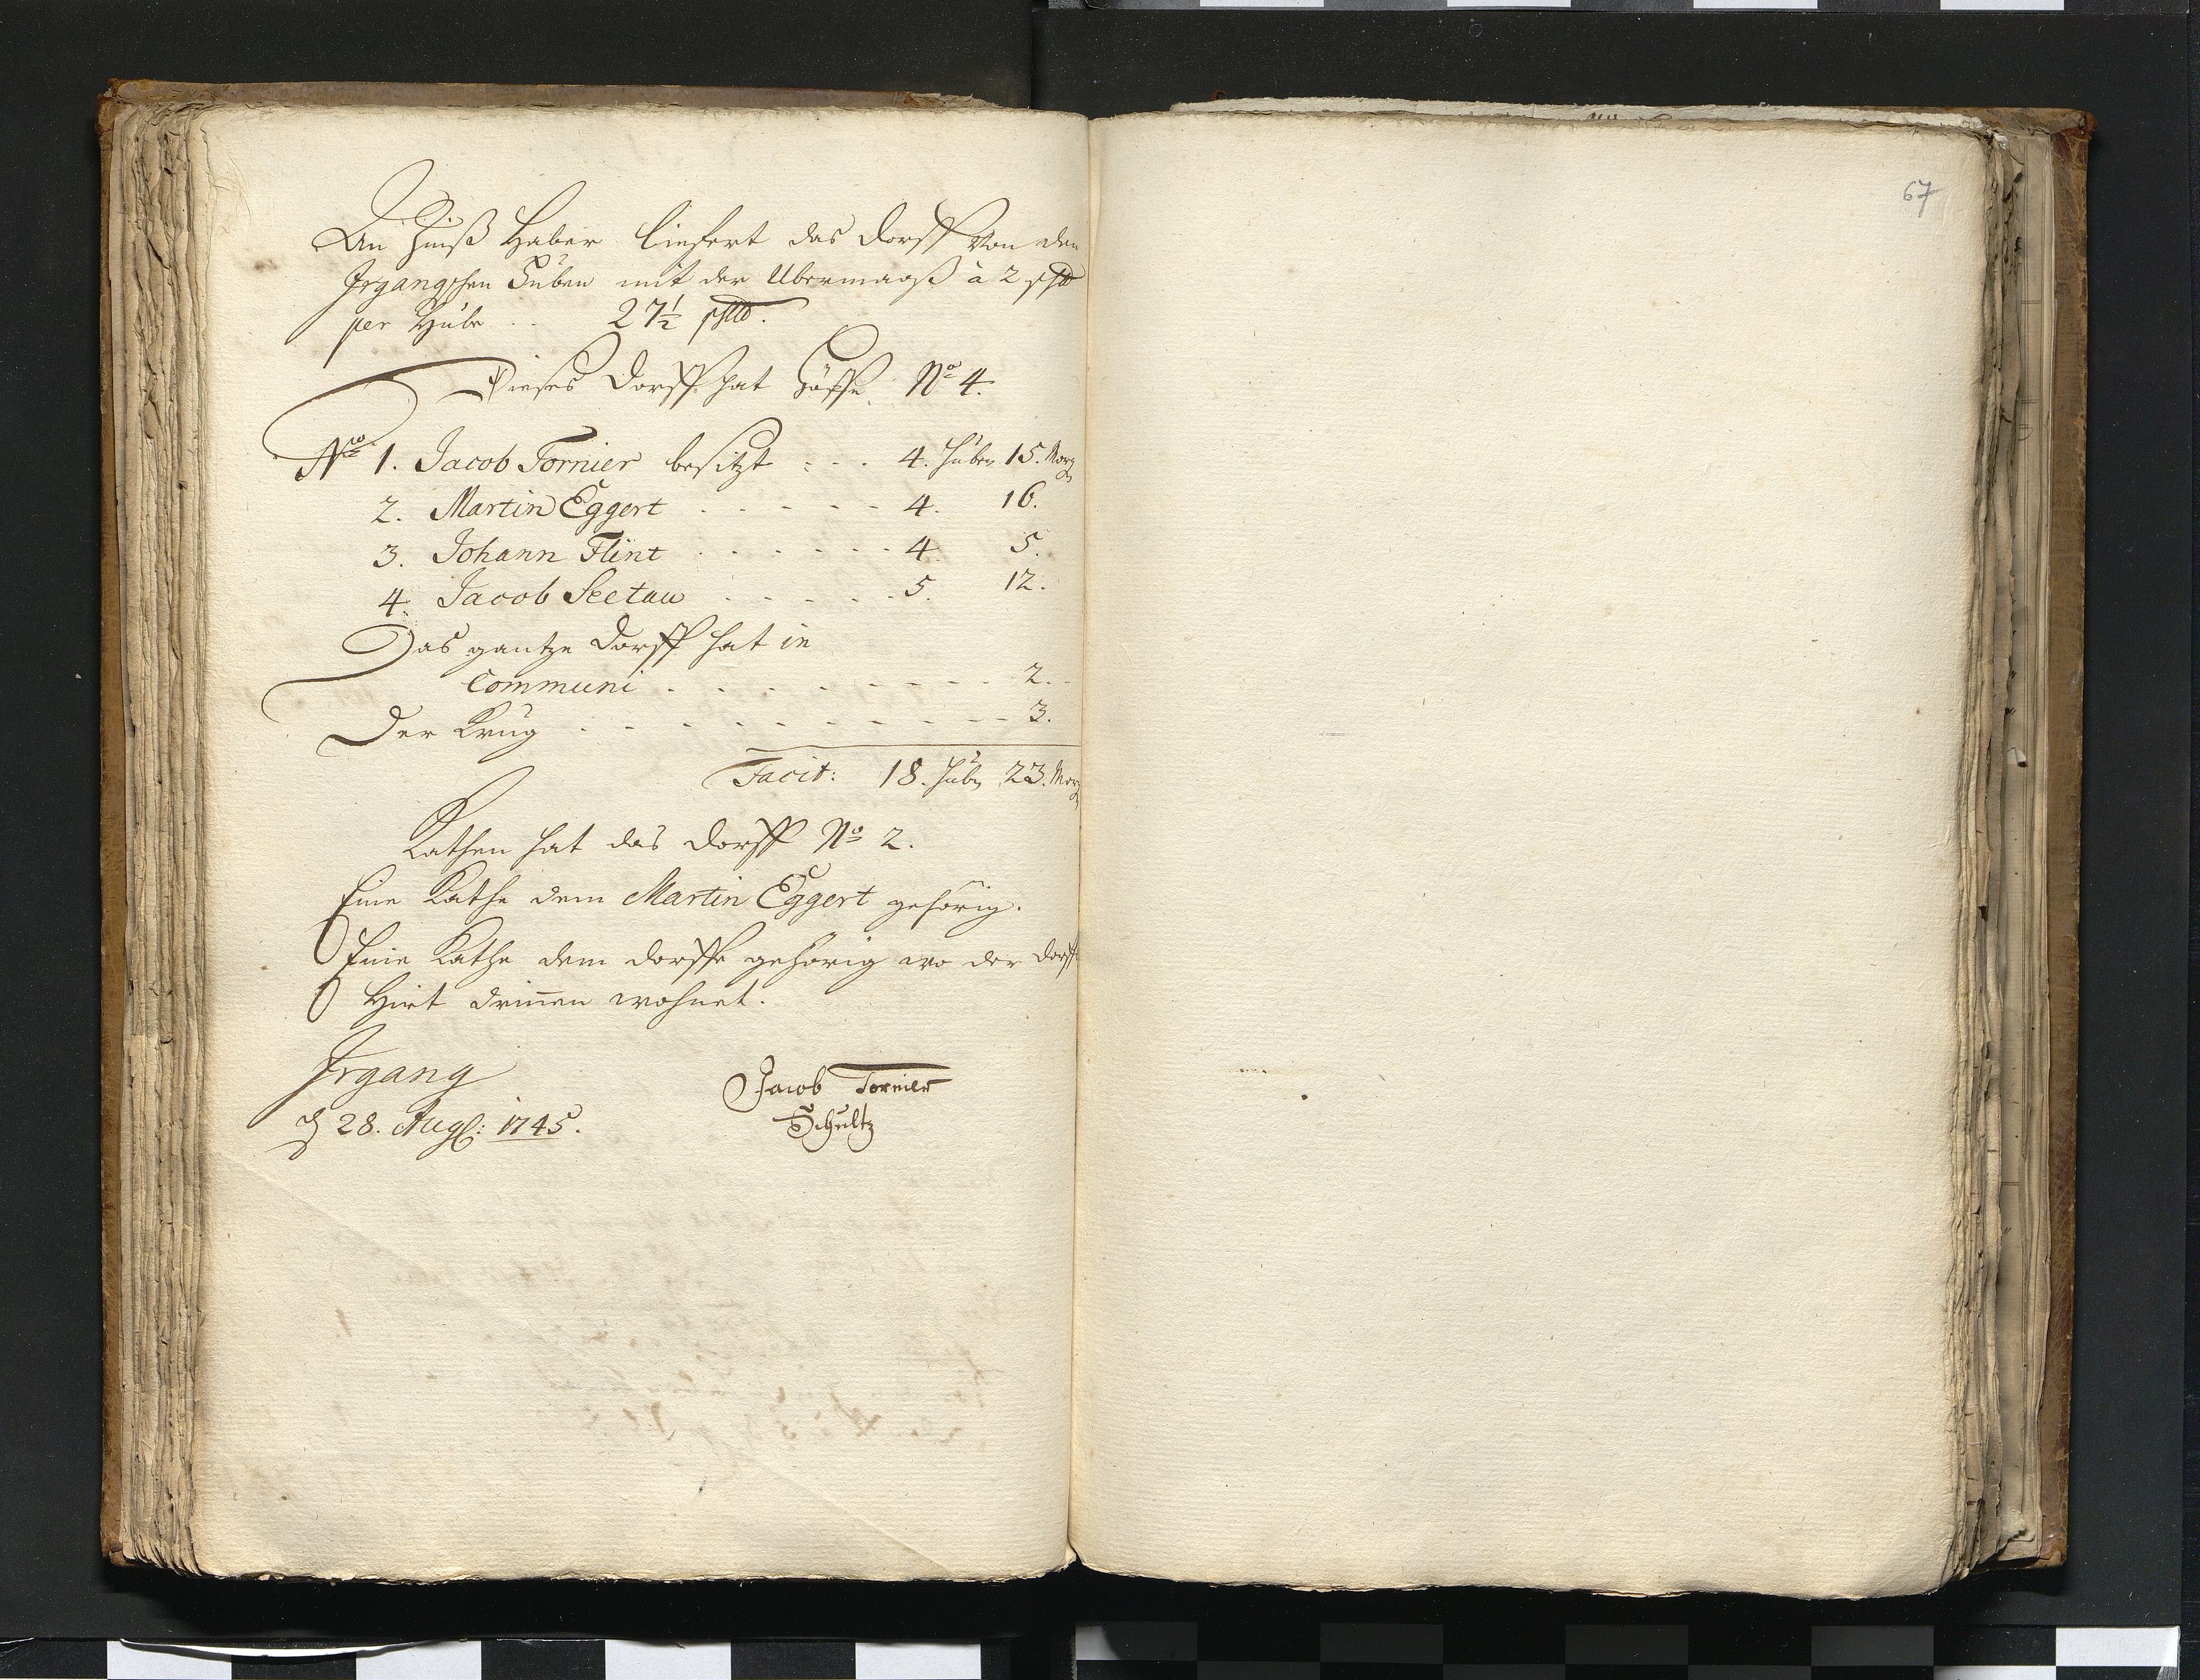 An Zinß Haber liefert das Dorff von den
Irgangschen Huben mit der Ubermaaß à 2 schtt
per Hube .. 27½ schtt.
Dieses Dorff hat Höffe No 4.
No 1. Jacob Tornier besitzt . . . 4. Huben 15. Morg
2. Martin Eggert . . . . . 4. 16.
3. Johann Flint . . . . . . 4. 5.
4. Jacob Seetau . . . . . 5. 12.
Das gantze Dorff hat in
Communi . . . . . . . . 2.
Der Krug . . . . . . . . . 3.
Facit: 18. Hub 23. Morg
Kathen hat das Dorff No 2.
Eine Kathe dem Martin Eggert gehörig.
Eine Kathe dem Dorffe gehörig wo der Dorff
Hirt drinnen wohnet.
Irgang
d 28. Aug: 1745.
Jacob Tornier
Schultz
67